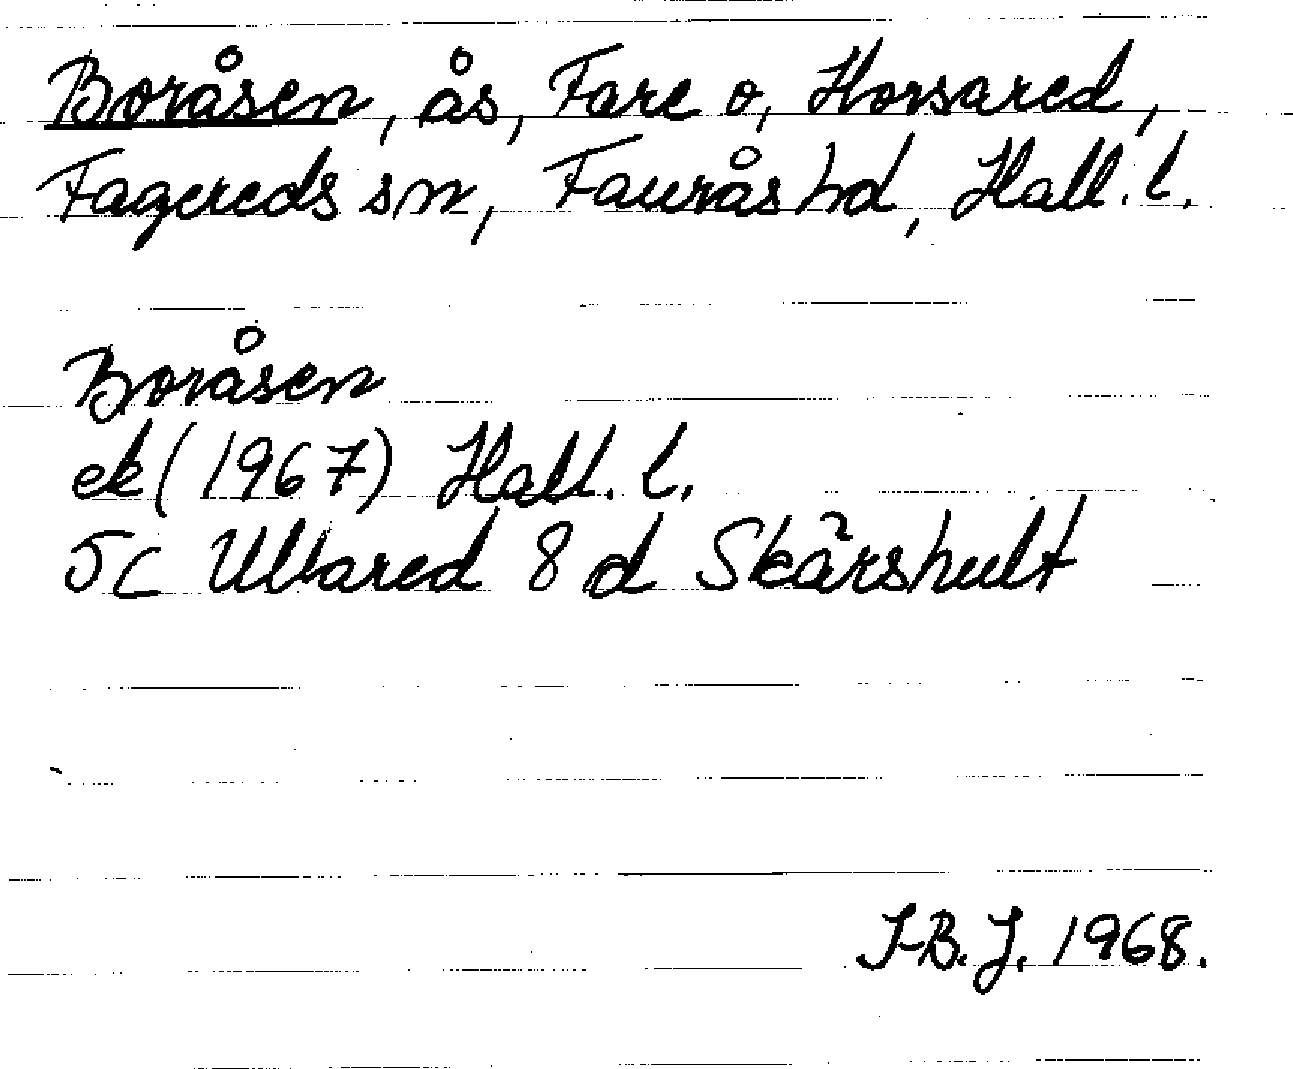 Boråsen, ås, Fare o, Horsared,
Fagereds sn, Faurås hd, Hall. l.
Boråsen
ek (1967) Hall. l.
5c Ullared 8 d Skärshult
I-B. J. 1968.